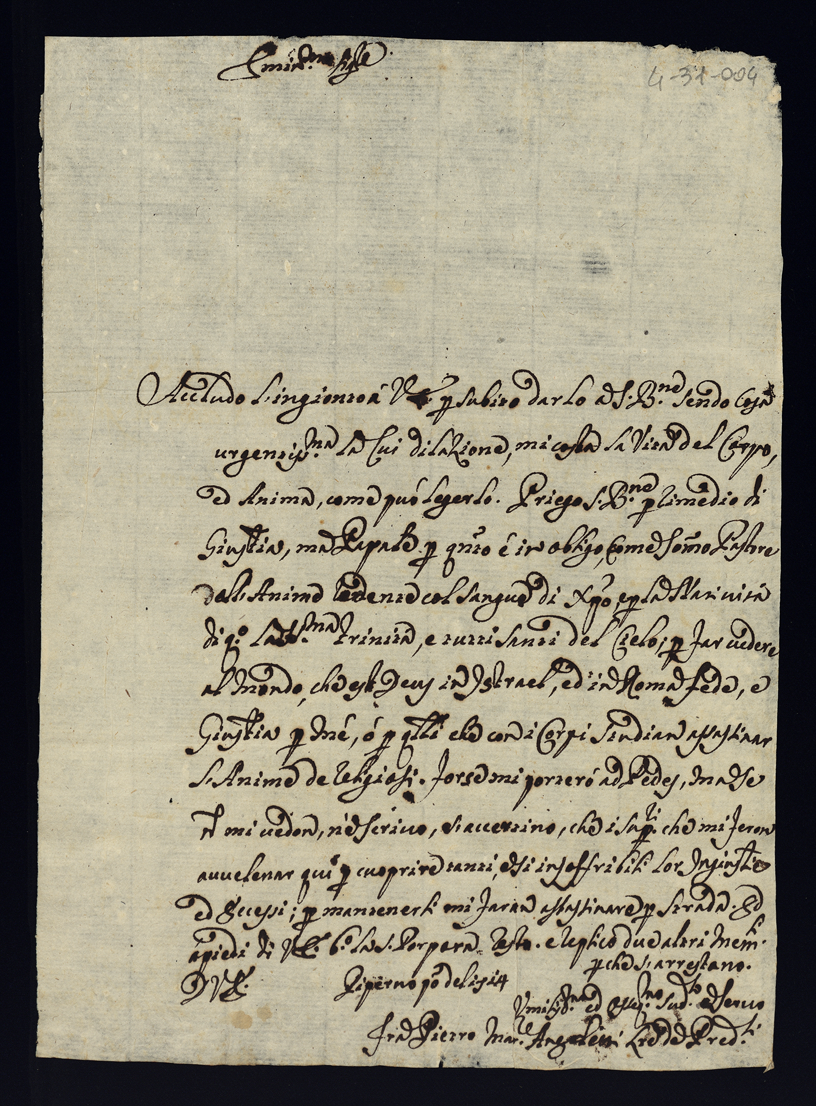 4-31-004
Accludo l'ingionto à V.E. p subito darlo a S. B.ne sendo Cosa
urgentiss.ma la Cui dilazione, mi costa la Vita del Corpo,
ed Anima, come può legerlo. Priego S. B.ne p rimedio di
Giustizia, ma Papale p è in obligo, Come Som̃o Pastore
dell'Anime redente col Sangue di Xpo, e p la Nativita
di la SS.ma Trinità, e tutti Santi del Cielo; p far vedere
al Mondo, che est Deus in Israel, ed in Roma fede, e
Giustizia p Mé, ó p che con i Corpi assassinar
l'Anime de Religiosi. Forse mi porteró ad Pedes, ma se
ñ mi vedon, né scrivo, s'accertino, che i Sup.ri che mi feron
auvelenar qui p cuoprire tanti, e si insoffribili lor Ingiustizie
ed eccessi; p mantenerli mi faran assassinare p strada. Ed
apiedi di V.E. b.o la S. Porpora, resto. e replico due altri Mem.li
p che s'arrestano.
D V.E. Piperno p.o
Umiliss.mo ed Servo
Fra Pietro Mar.